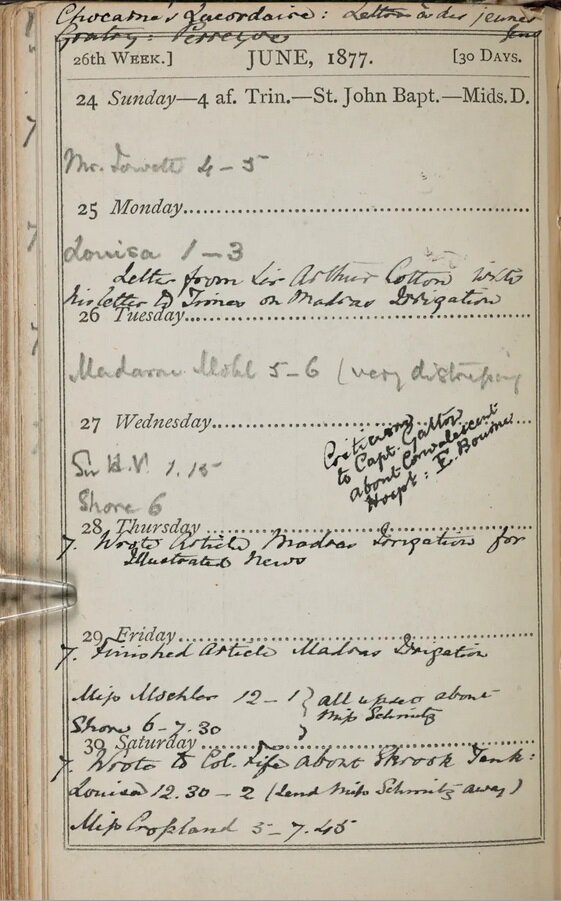 Chocarne's Lacordaire: Letters à des jeunes gens
Gratry: Perreyve
26th WEEK.] JUNE, 1877. [30 DAYS.
24 Sunday—4 af. Trin.—St. John Bapt.—Mids. D.
Mr. Jowett 4 - 5
25 Monday
Louisa 1 - 3
Letter from Sir Arthur Cotton with
his letter to Times on Madras Irrigation
26 Tuesday
Madame Mohl 5 - 6 (very distressing
27 Wednesday
Criticisms
to Capt. Galton
about Convalescent
Hospl: E. Bourne
Sir H.V. 1.15
Shore 6
28 Thursday
7. Wrote Article Madras Irrigation for
Illustrated News
29 Friday
7. Finished Article Madras Irrigation
Miss Machler 12 - 1 } all about
Miss Schmitz
Shore 6 - 7.30
30 Saturday
7. Wrote to Col. Fife about Ekrook Tank:
Louisa 12.30 - 2 (send Miss Schmitz away)
Miss Crossland 5 - 7.45
7
7
7